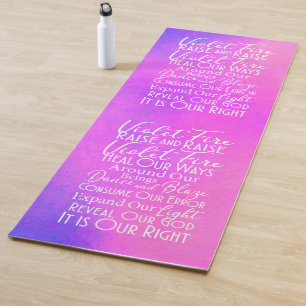 Violet Fire
RAISE AND RAISE
Violet Fire
HEAL OUR WAYS
Around Our
Beings
Dance and Blaze
CONSUME OUR ERROR
Expand Our Light
REVEAL OUR GOD
IT IS OUR RIGHT
Violet Fire
RAISE AND RAISE
Violet Fire
HEAL OUR WAYS
Around Our
Beings
Dance and Blaze
CONSUME OUR ERROR
Expand Our Light
REVEAL OUR GOD
IT IS OUR RIGHT